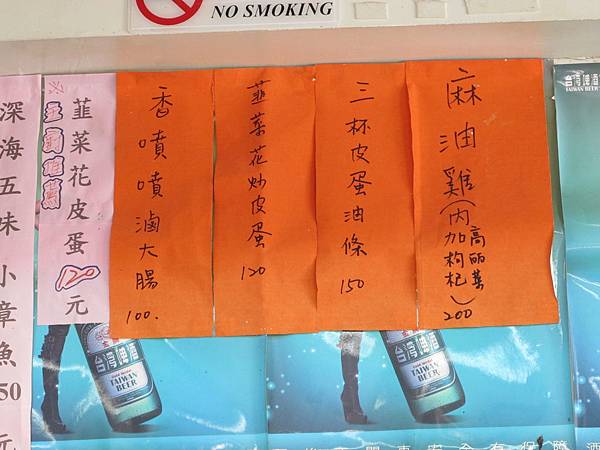 NO SMOKING
麻油雞(內加高麗菜枸杞)
200
三杯皮蛋油條
150
韮菜花炒皮蛋
120
香噴噴滷大腸
100.
韮菜花皮蛋120元
深海五味小章魚
50元
台灣啤酒
TAIWAN BEER
台灣啤酒
TAIWAN BEER
台灣啤酒
TAIWAN BEER